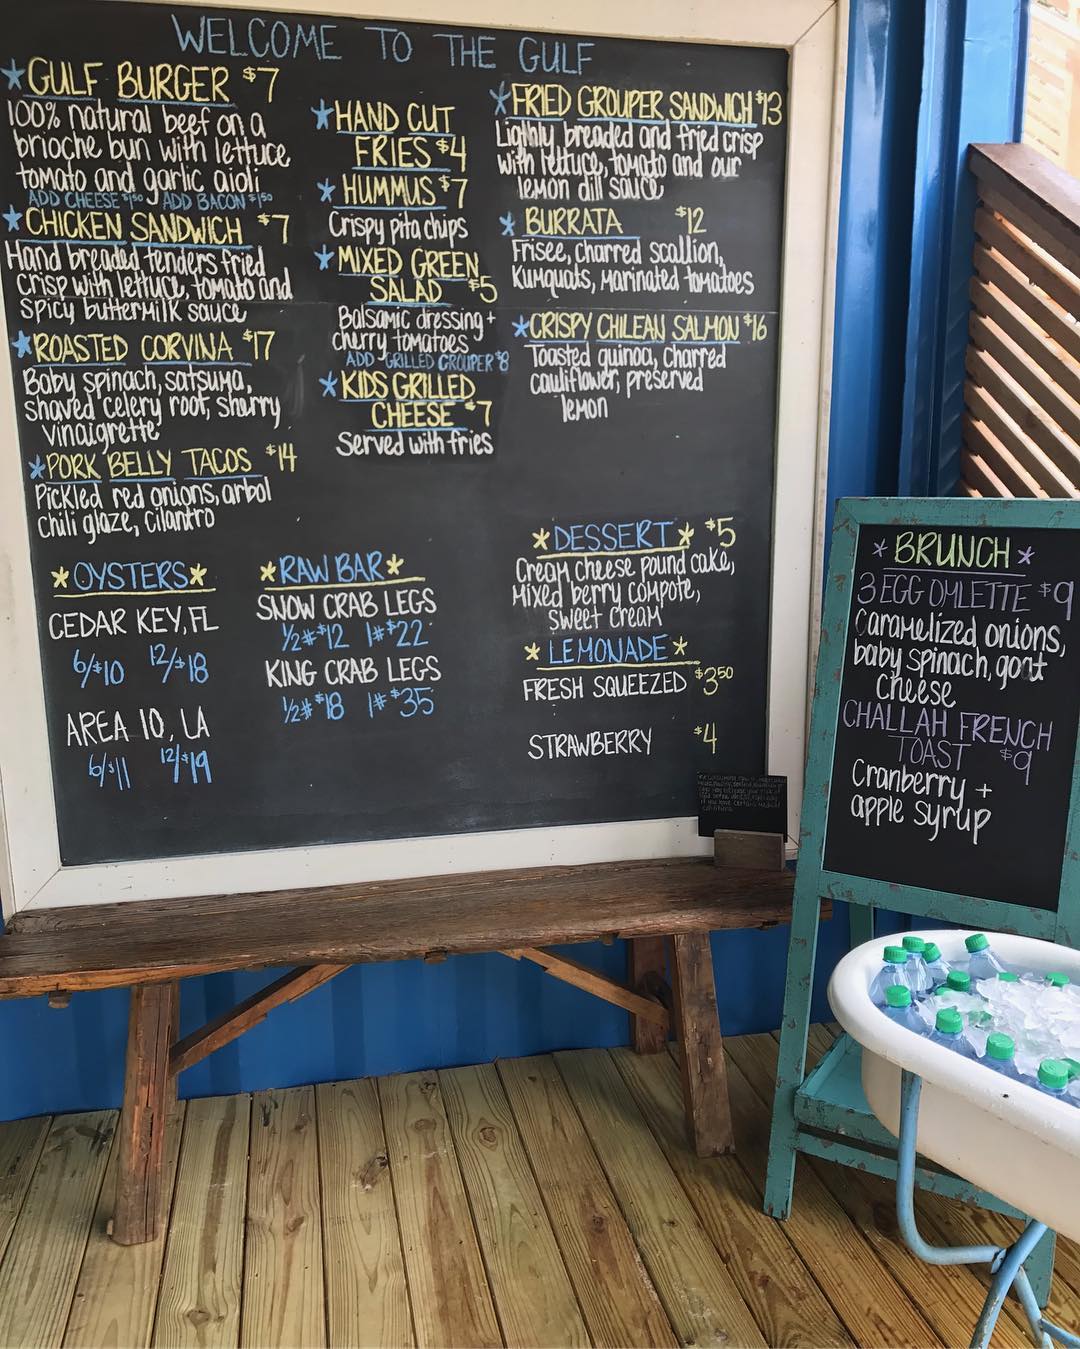 WELCOME TO THE GULF
*GULF BURGER $7
100% natural beef on a
brioche bun with lettuce
tomato and garlic aioli
ADD CHEESE $1.50 ADD BACON $1.50
*CHICKEN SANDWICH $7
Hand breaded tenders fried
crisp with lettuce, tomato and
spicy buttermilk sauce
*ROASTED CORVINA $17
Baby spinach, satsuma,
shaved celery root, sherry
vinaigrette
*PORK BELLY TACOS $14
Pickled red onions, arbol
chili glaze, cilantro
*HAND CUT
FRIES $4
*HUMMUS $7
Crispy pita chips
*MIXED GREEN
SALAD $5
Balsamic dressing +
cherry tomatoes
ADD GRILLED GROUPER $8
*KIDS GRILLED
CHEESE $7
Served with fries
*FRIED GROUPER SANDWICH $13
Lightly breaded and fried crisp
with lettuce, tomato and our
lemon dill sauce
*BURRATA $12
Frisee, charred scallion,
Kumquats, marinated tomatoes
*CRISPY CHILEAN SALMON $16
Toasted quinoa, charred
cauliflower, preserved
lemon
*OYSTERS*
CEDAR KEY, FL
6/$10 12/$18
AREA 10, LA
6/$11 12/$19
*RAW BAR*
SNOW CRAB LEGS
1/2# $12 1# $22
KING CRAB LEGS
1/2# $18 1# $35
*DESSERT* $5
Cream cheese pound cake,
Mixed berry compote,
sweet cream
*LEMONADE*
FRESH SQUEEZED $3.50
STRAWBERRY $4
*BRUNCH*
3 EGG OMLETTE $9
Caramelized onions,
baby spinach, goat
cheese
CHALLAH FRENCH
TOAST $9
Cranberry +
apple syrup